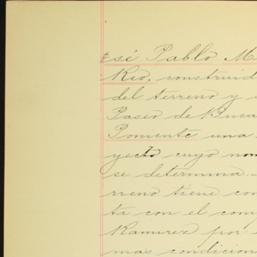 esé Pablo M
Rio, construid
del terreno y
Paseo de
Pomente una
yecto cuyo nom
se determina
rreno tiene con
ta con el com
Ramirez por
mas condicion